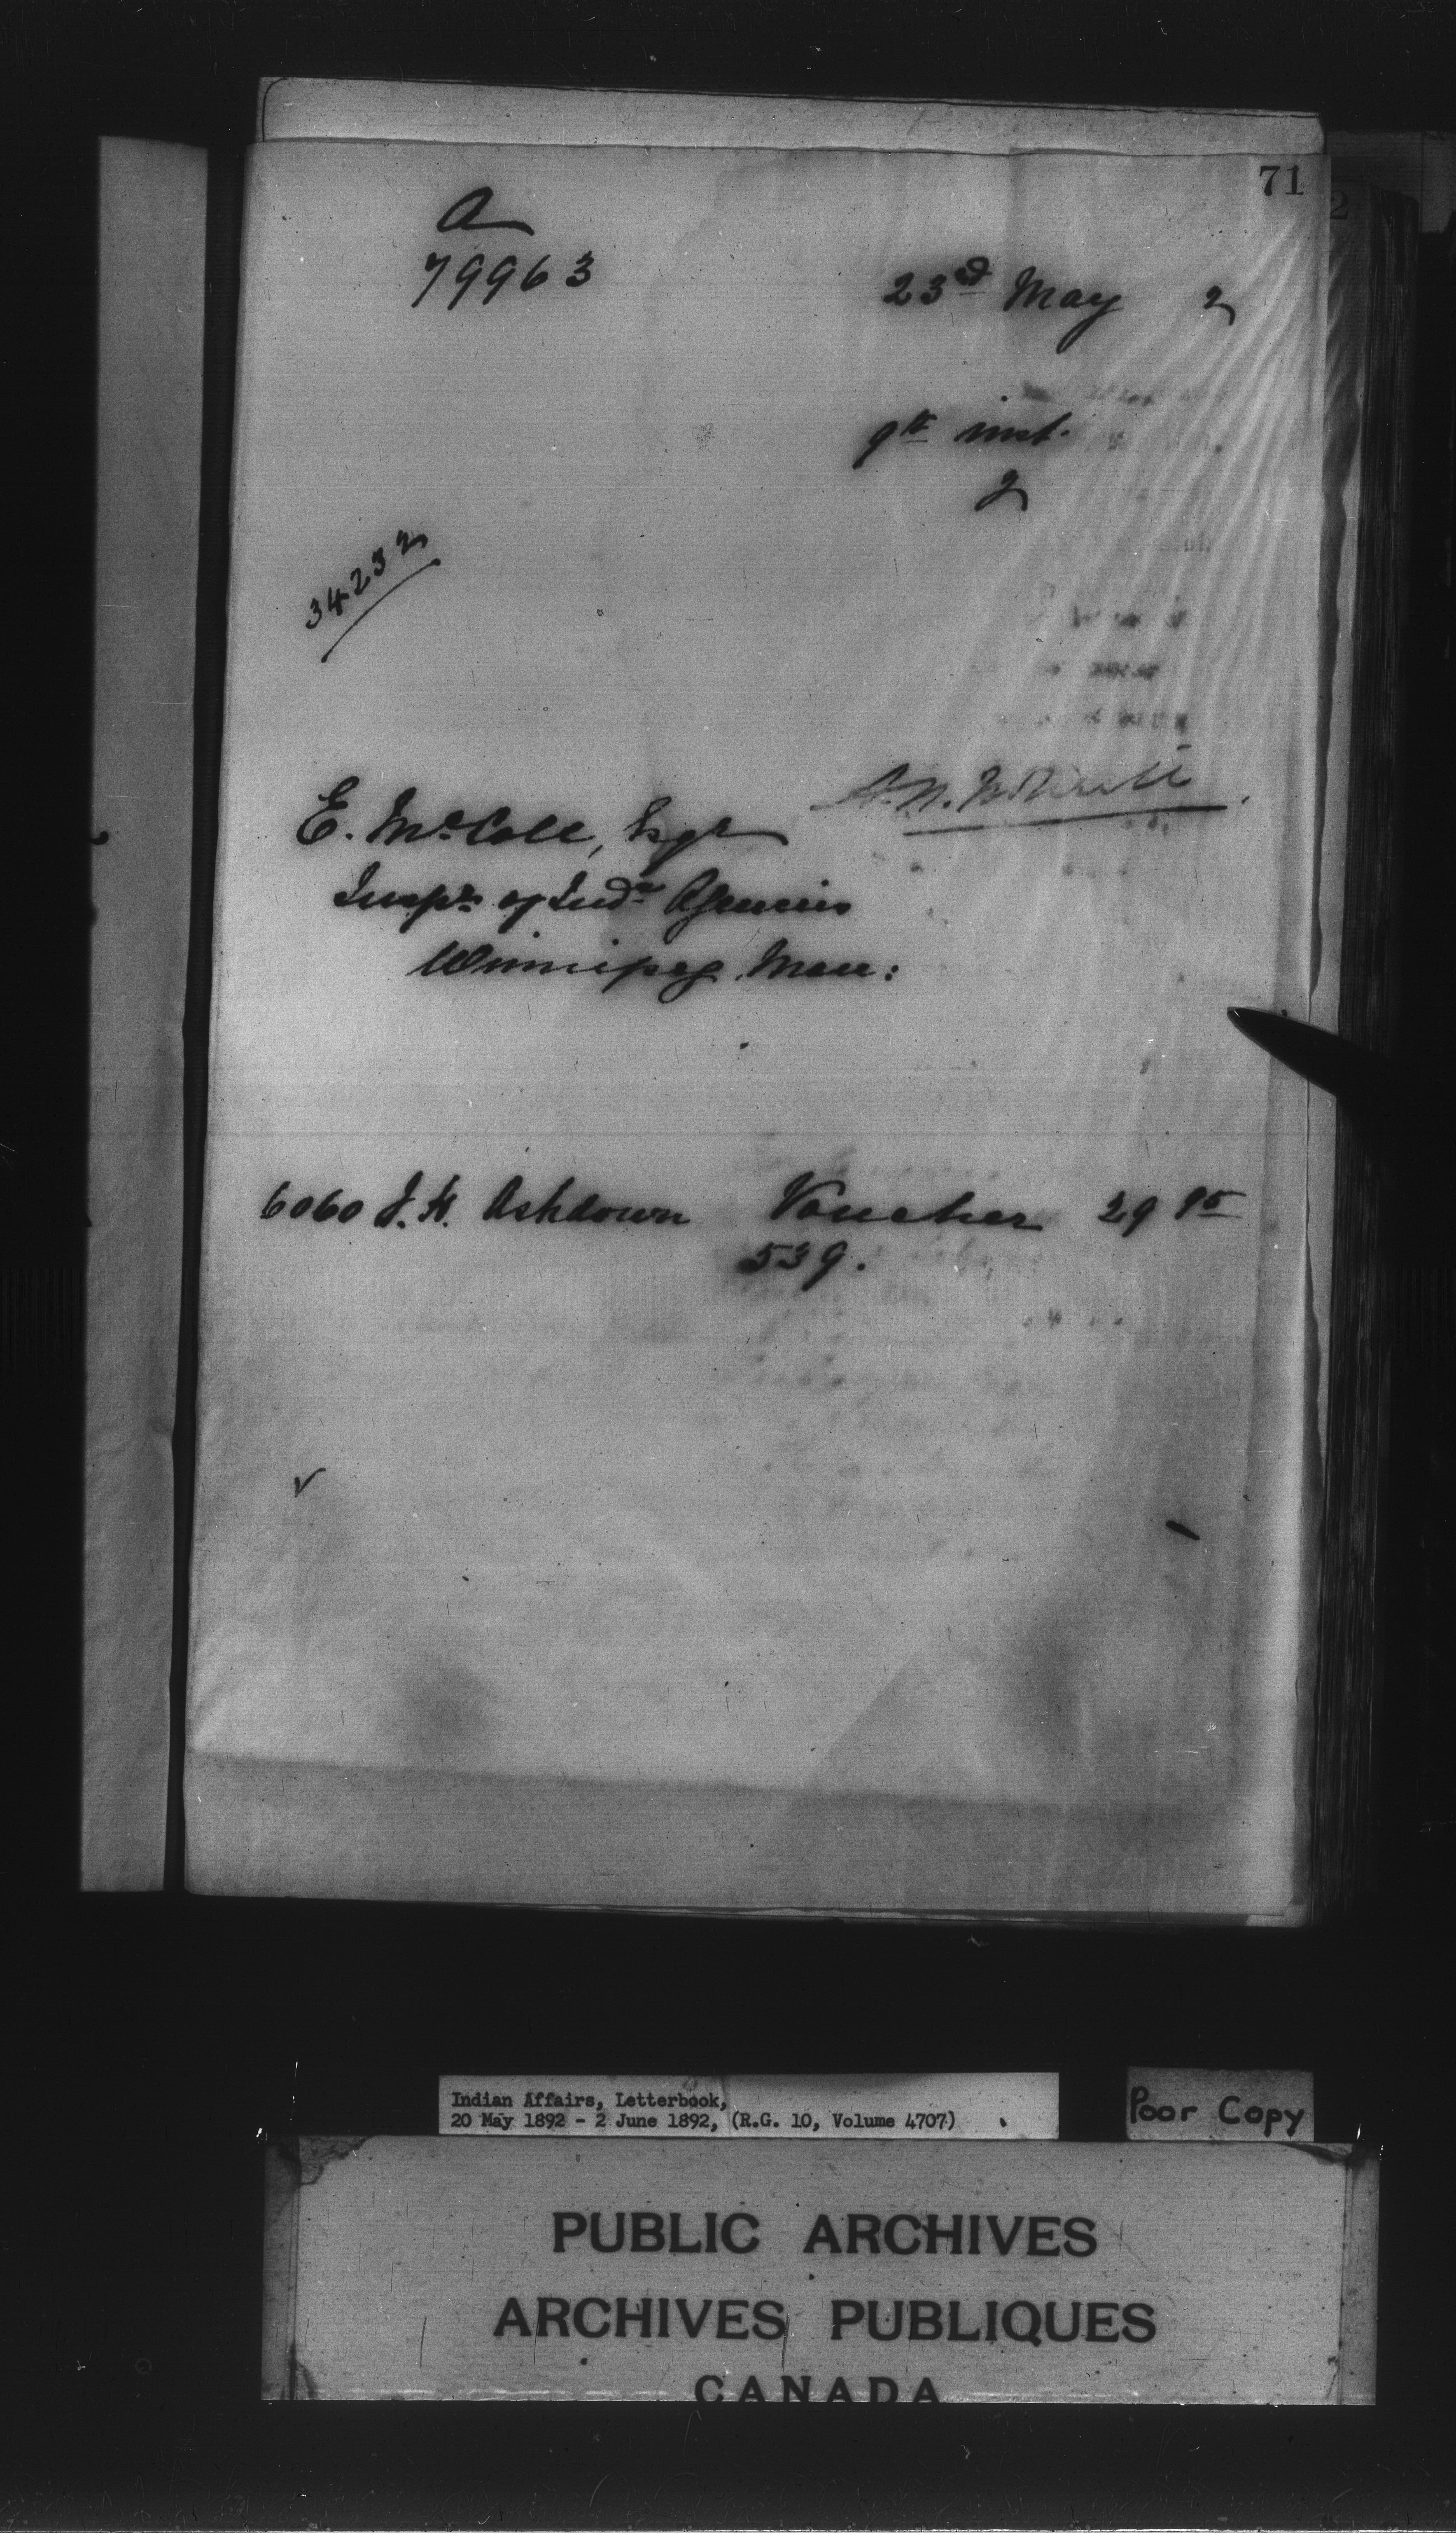 71
a
79963
23rd May 2
9th inst.
2
34232
E. McColl, Esqr
Inspr. of Indn Agencies
Winnipeg Man:
6060 J. H. Ashdown Voucher 29 95
539.
Indian Affairs, Letterbook,
20 May 1892 - 2 June 1892, (R.G. 10, Volume 4707)
Poor Copy
PUBLIC ARCHIVES
ARCHIVES PUBLIQUES
CANADA